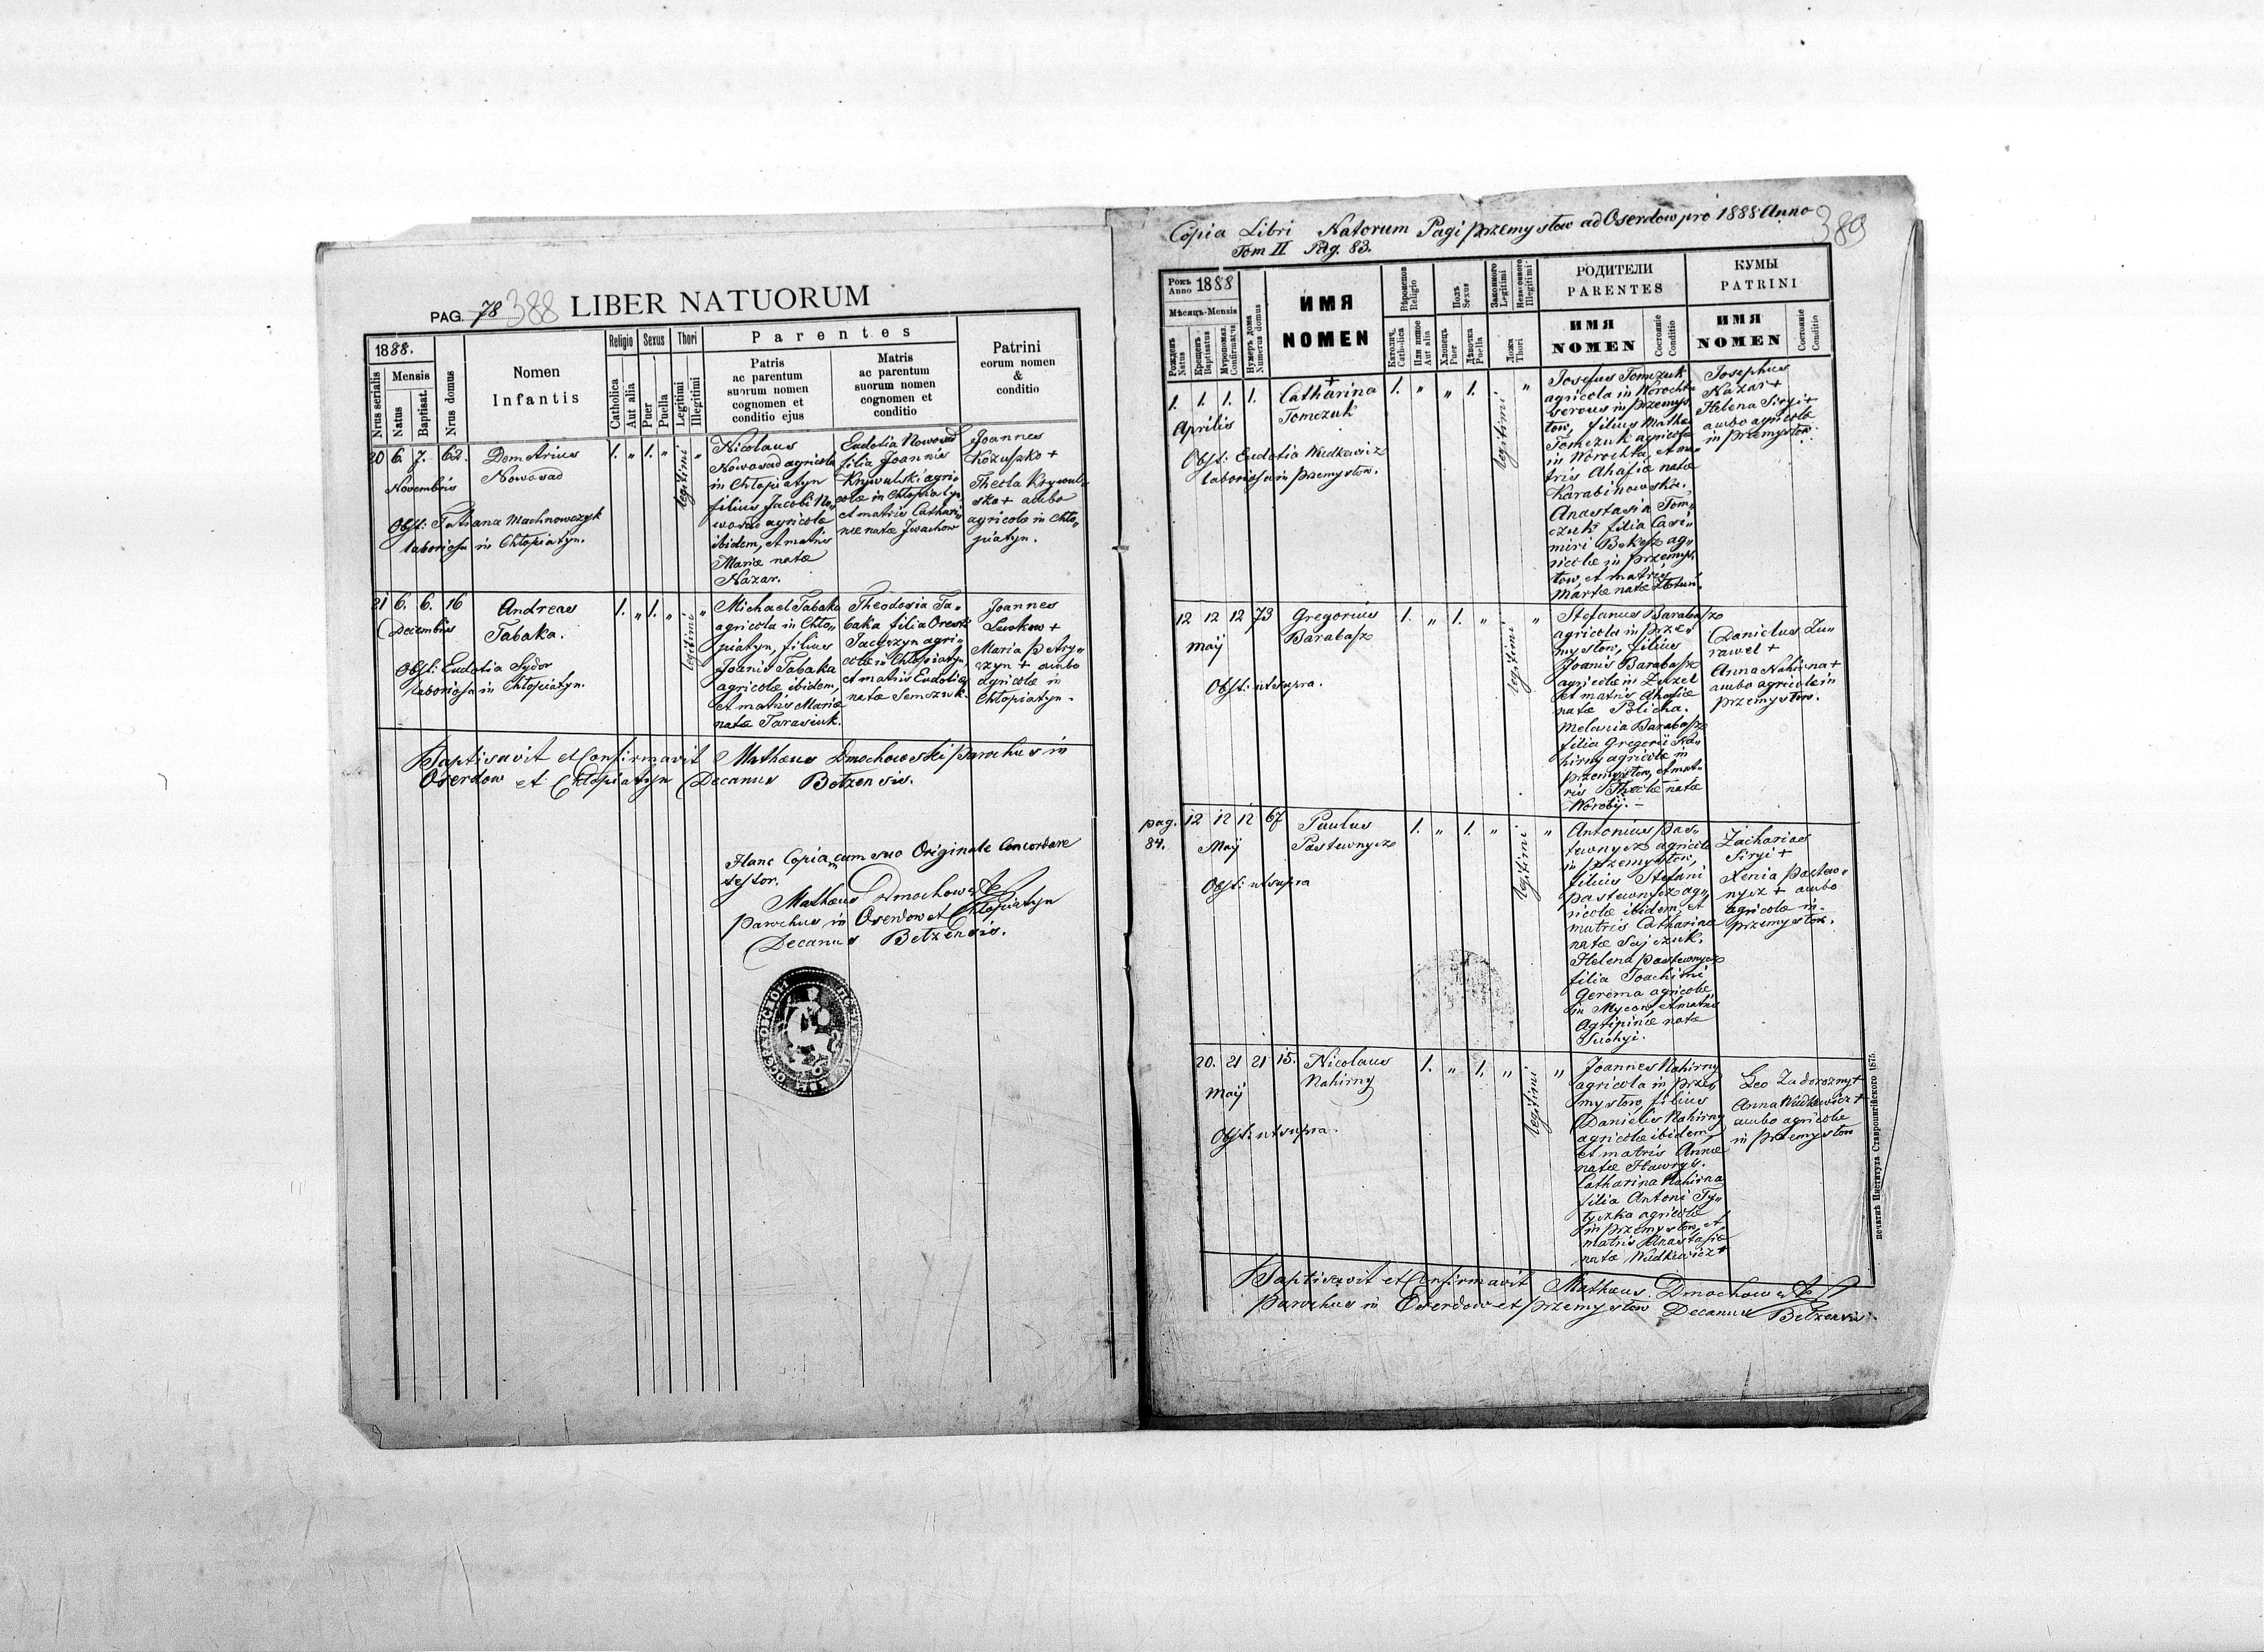 PAG. 78 388 LIBER NATUORUM
1888.
Nrus serialis
Mensis
Natus
Baptisat.
Nrus domus
Nomen
Infantis
Religio
Catholica
Aut alia
Sexus
Puer
Puella
Thori
Legitimi
Illegitimi
Parentes
Patris
ac parentum
suorum nomen
cognomen et
conditio ejus
Matris
ac parentum
suorum nomen
cognomen et
conditio
Patrini
eorum nomen
&
conditio
20 6. 7. 62.
Novembris
Demetrius
Nowosad
Obst: Tatiana Machnowczyk
laboriosa in Chłopiatyn.
1. „ 1. „ legitimi „
Nicolaus
Nowosad agricola
in Chłopiatyn
filius Jacobi No„
wosad agricolæ
ibidem, et matris
Mariæ natæ
Nazar.
Eudotia Nowosad
filia Joannis
Krywulski agri„
colæ in Chłopiatyn,
et matris Cathari„
næ natæ Iwachow
Joannes
Kożuszko +
Thecla Krywul„
ska + ambo
agricolæ in Chło„
piatyn.
21 6. 6. 16
Decembris
Andreas
Tabaka.
Obst: Eudotia Sydor
laboriosa in Chłopiatyn.
1. „ 1. „ legitimi „
Michael Tabaka
agricola in Chło„
piatyn, filius
Joanis Tabaka
agricolæ ibidem,
et matris Mariæ
natæ Tarasiuk.
Theodosia Ta„
baka filia Orestis
agri„
colæ in Chłopiatyn,
et matris Eudotiæ
natæ Semczuk.
Joannes
Leskow +
Maria Petry„
szyn + ambo
agricolæ in
Chłopiatyn.
Baptisavit et Confirmavit Mathæus Dmochowski parochus in
Oserdow et Chłopiatyn Decanus Bełzensis.
Hanc Copiam cum suo Originale Concordare
testor.
Mathæus Dmochowski
parochus in Oserdow et Chłopiatyn
Decanus Bełzensis.
Copia Libri Natorum Pagi Przemysłow ad Oserdow pro 1888 Anno 389
Tom II Pag. 83.
Рокъ
Anno 1888
Мѣсяцъ-Mensis
Рожденъ
Natus
Крещенъ
Baptisatus
Мѵропомаз.
Confirmatus
Нумеръ дома
Numerus domus
ИМЯ
NOMEN
Вѣроисп.
Religio
Католич.
Catholica
Или инное
Aut alia
Полъ
Sexus
Хлопецъ
Puer
Дѣвочка
Puella
Законного
Legitimi
Незаконного
Illegitimi
Ложа
Thori
РОДИТЕЛИ
PARENTES
ИМЯ
NOMEN
Состояніе
Conditio
КУМЫ
PATRINI
ИМЯ
NOMEN
Состояніе
Conditio
1. 1. 1. 1.
Aprilis
+
Catharina
Tomczuk
Obst: Eudotia Wudkewicz
laboriosa in Przemysłow.
1. „ „ 1. legitimi „
Josefus Tomczuk
agricola in Worochta
in Przemys„
łow, filius Mathæi
Tomczuk agricolæ
in Worochta, et ma„
tris Ahafiæ natæ
Karabinowska.
Anastasia Tom„
czuk filia Casi„
miri ag„
ricolæ in Przemys„
łow, et matris
Martæ natæ
Josephus
Nazar +
Helena Siryi +
ambo agricolæ
in Przemysłow.
12 12 12 73
Maÿ
Gregorius
Barabasz
Obst: ut supra.
1. „ 1. „ legitimi „
Stefanus Barabasz
agricola in Prze„
mysłow, filius
Joanis Barabasz
agricolæ in Żużel
et matris Ahafiæ
natæ Policha.
Melania Barabasz
filia Gregorii Na„
hirny agricolæ in
Przemysłow, et mat„
ris Theclæ natæ
Worobij. –
Daniclus Żu„
rawel +
Anna Nahirna +
ambo agricolæ in
Przemysłow.
pag.
84.
12 12 12 67
Maÿ
Paulus
Pastewnycz
Obst: ut supra
1. „ 1. „ legitimi „
Antonius Pas„
tewnycz agricola
in Przemysłow,
filius Stefani
Pastewnycz ag„
ricolæ ibidem, et
matris Catharinæ
natæ Sajczuk.
Helena Pastewnycz
filia Joachimi
Gerema agricolæ
in Mycow, et matris
Agripinæ natæ
Suchyi.
Zacharias
Siryi +
Xenia Pastew„
nycz + ambo
agricolæ in
Przemysłow.
20. 21 21 15.
Maÿ
Nicolaus
Nahirny
Obst: ut supra.
1. „ 1. „ legitimi „
Joannes Nahirny
agricola in Prze„
mysłow, filius
Danielis Nahirny
agricolæ ibidem,
et matris Annæ
natæ Hawryś.
Catharina Nahirna
filia Antoni Ty„
tyczka agricolæ
in Przemysłow, et
matris Anastasiæ
natæ Wudkiewicz +
Leo Zadorożny +
Anna Wudkewicz +
ambo agricolæ
in Przemysłow
Baptisavit et Confirmavit Mathæus Dmochowski
Parochus in Oserdow et Przemysłow Decanus Bełzensis.
печатнѣ Института Ставропигійского 1875.